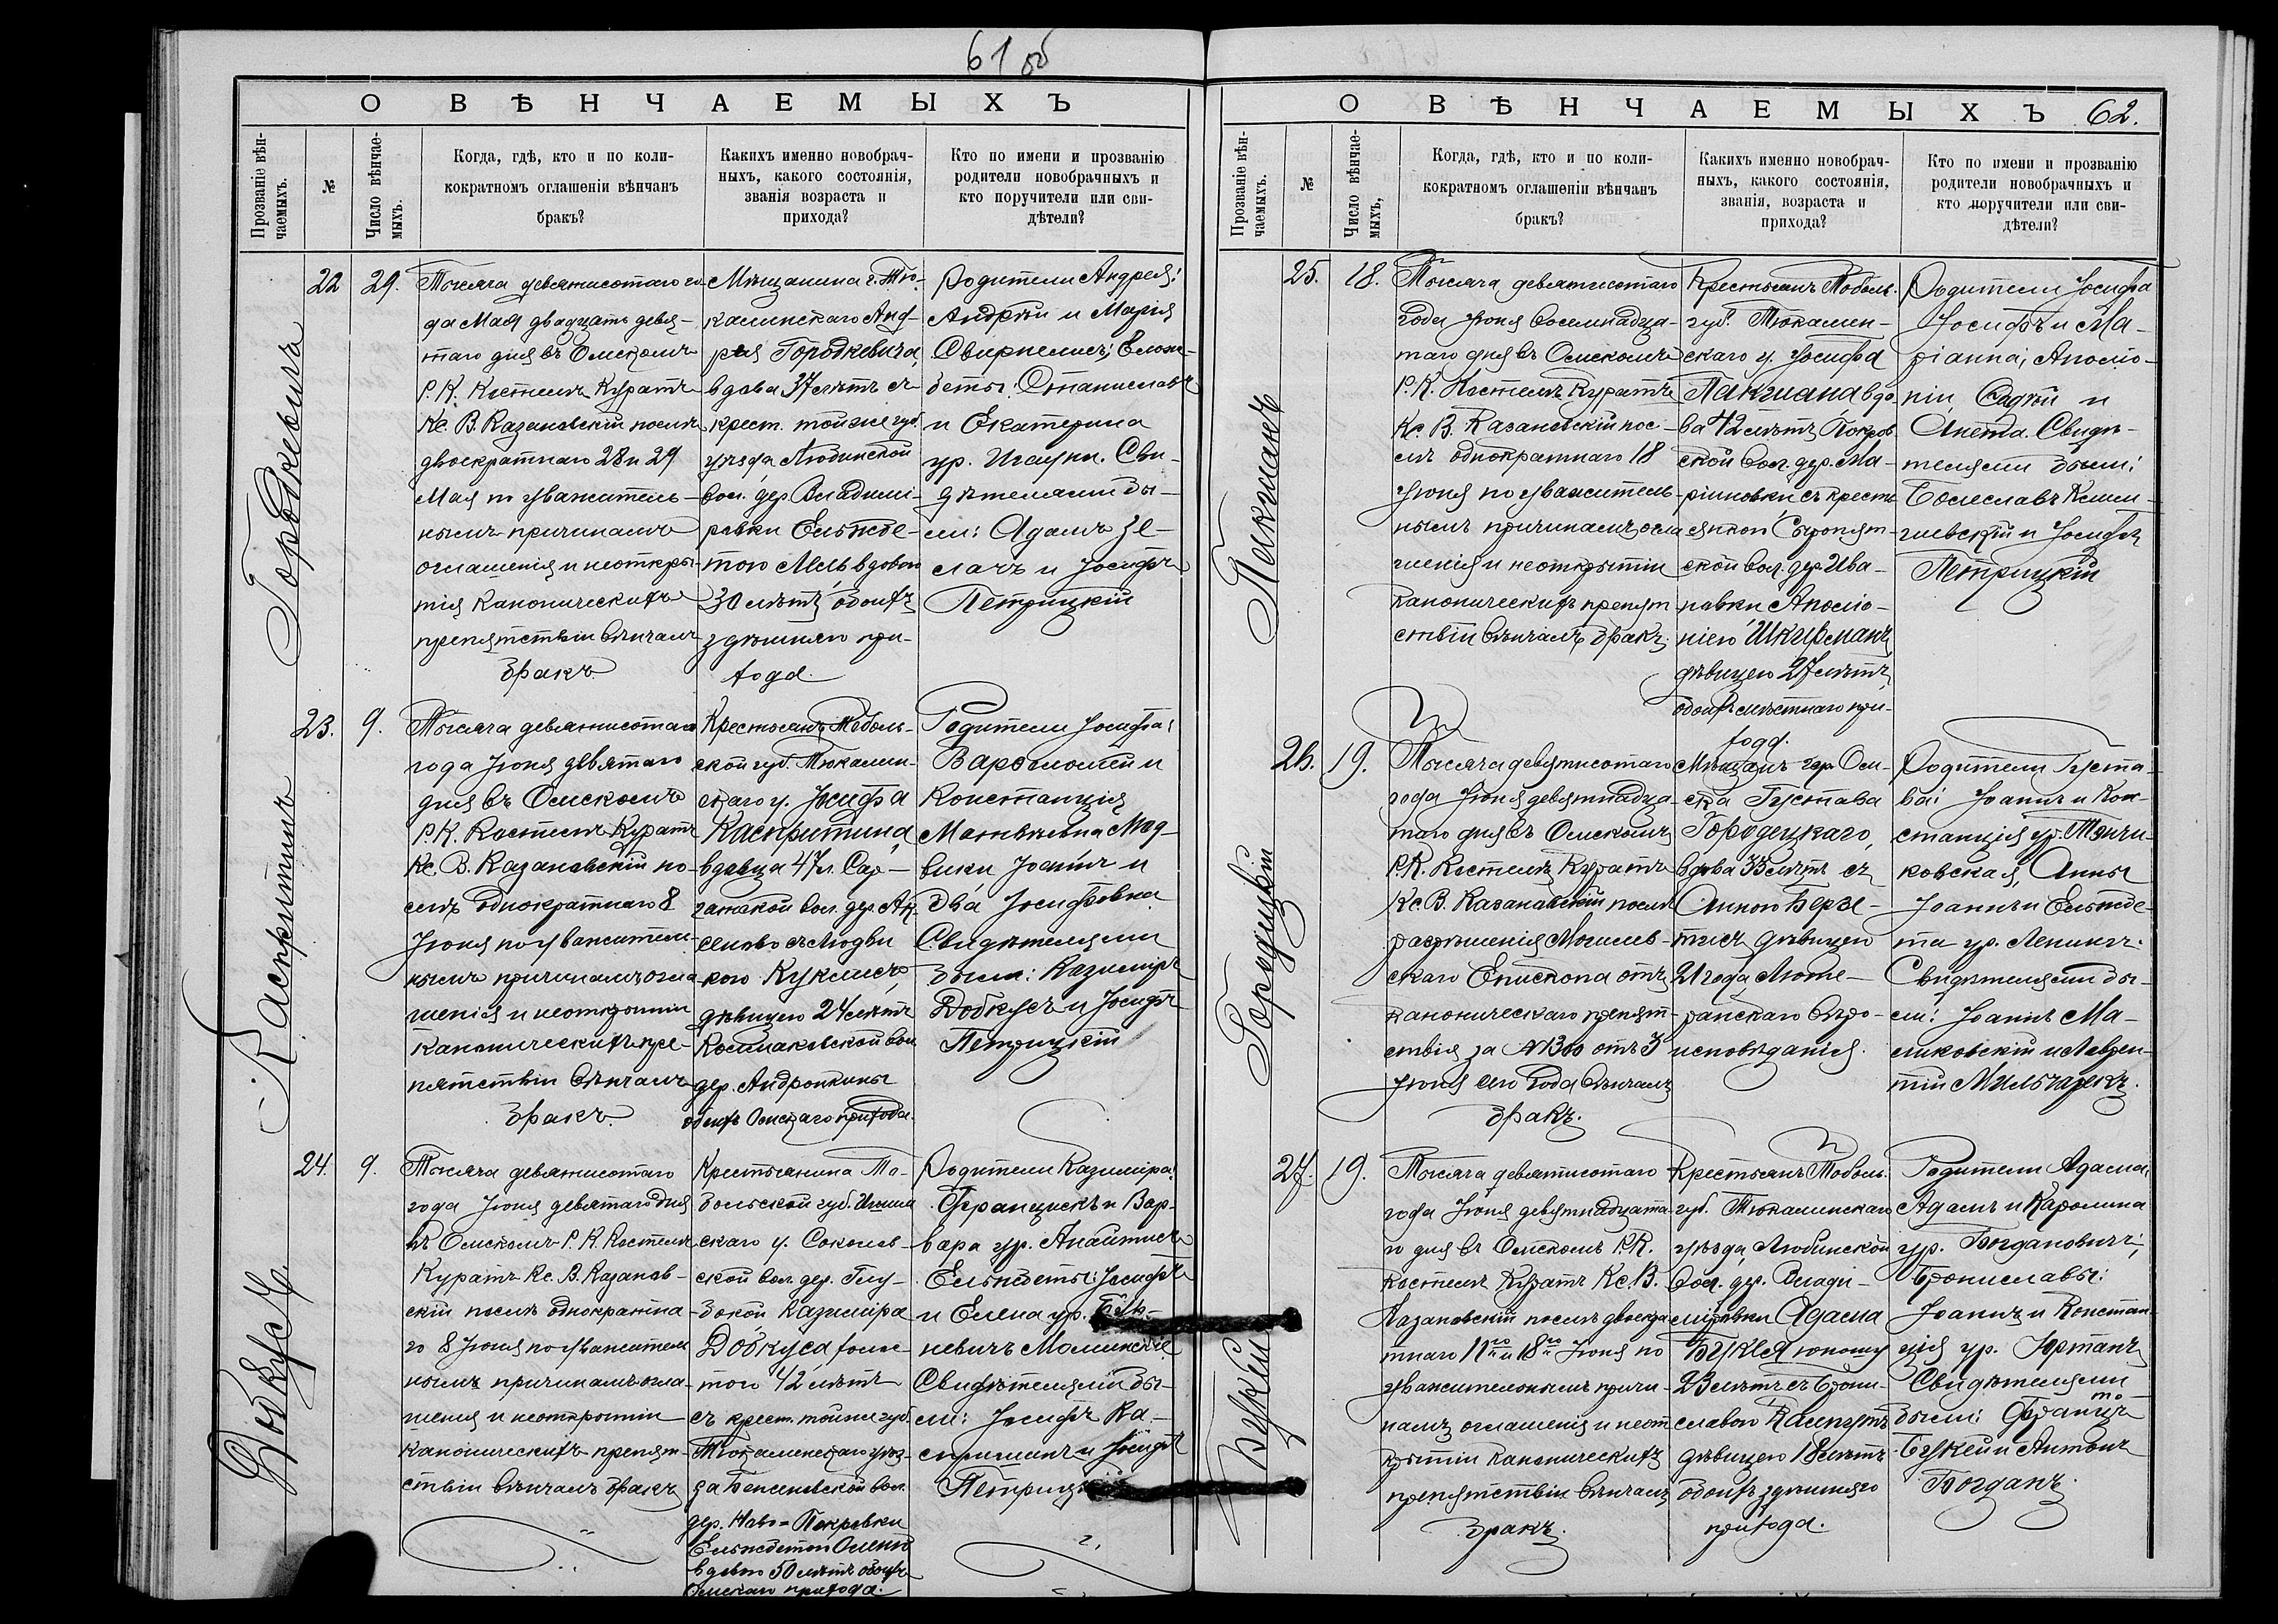 61 об
О ВѢНЧАЕМЫХЪ
Прозваніе вѣнчаемыхъ.
№
Число вѣнчаемыхъ.
Когда, гдѣ, кто и по коли-
кократномъ оглашеніи вѣнчанъ
бракъ?
Какихъ именно новобрач-
ныхъ, какого состоянія,
званія возраста и
прихода?
Кто по имени и прозванію
родители новобрачныхъ и
кто поручители или сви-
дѣтели?
Городкевича
22
29.
Тысяча девятисотаго го-
да Мая двадцать девя-
таго дня въ Омскомъ
Р. К. Костелѣ Куратъ
Кс. В. Казановскій послѣ
двоекратнаго 28 и 29
Мая по уважитель-
нымъ причинамъ
оглашенія и неоткры-
тія каноническихъ
препятствій вѣнчалъ
бракъ.
Мѣщанина г. Тю-
калинскаго Анд-
рея Городкевича,
вдова 37 лѣтъ съ
крест. той же губ.
уѣзда Любинской
вол. дер. Владими-
ровки Елизаве-
тою вдовою
30 лѣтъ, обоихъ
здѣшняго при-
хода.
Родители Андрея:
Андрей и Марія
Елиза-
веты: Станиславъ
и Екатерина
ур. Сви-
дѣтелями бы-
ли: Адамъ Зе-
лачъ и Іосифъ
Петрицкій
Каспритинъ
23.
9.
Тысяча девятисотаго
года Іюня девятаго
дня въ Омскомъ
Р. К. Костелѣ Куратъ
Кс. В. Казановскій по-
слѣ однократнаго 8
Іюня по уважитель-
нымъ причинамъ огла-
шенія и неоткрытіи
каноническихъ пре-
пятствій вѣнчалъ
бракъ.
Крестьянъ Тоболь-
ской губ. Тюкалин-
скаго у. Іосифа
Каспритина,
вдовца 47 л.
вол. дер.
съ Людви-
кою
дѣвицею 24 лѣтъ
вол.
дер. Андронкины
обоихъ Омскаго прихода.
Родители Іосифа:
Варфоломей и
Констанція
Люд-
вики Іоаннъ и
Ева Іосифовна
Свидѣтелями
были: Казиміръ
Добкусъ и Іосифъ
Петрицкій
Добкусъ.
24.
9.
Тысяча девятисотаго
года Іюня девятаго дня
въ Омскомъ Р. К. Костелѣ
Куратъ Кс. В. Казанов-
скій послѣ однократна-
го 8 Іюня по уважитель-
нымъ причинамъ огла-
шенія и неоткрытіи
каноническихъ препят-
ствій вѣнчалъ бракъ
Крестьянина То-
больской губ. Ишим-
скаго у. Соколов-
ской вол. дер. Глу-
бокой Казиміра
Добкуса холос-
того 42 лѣтъ
съ крест. той же губ.
Тюкалинскаго уѣз-
да вол.
дер. Ново-Покровки
Елизаветою
вдовою 50 лѣтъ обоихъ
Омскаго прихода.
Родители Казиміра:
Францискъ и Вар-
вара ур.
Елизаветы: Іосифъ
и Елена ур.
Свидѣтелями бы-
ли: Іосифъ Ка-
спритинъ и Іосифъ
Петрицкій
О ВѢНЧАЕМЫХЪ 62.
Прозваніе вѣнчаемыхъ.
№
Число вѣнчаемыхъ,
Когда, гдѣ, кто и по коли-
кократномъ оглашеніи вѣнчанъ
бракъ?
Какихъ именно новобрач-
ныхъ, какого состоянія,
званія, возраста и
прихода?
Кто по имени и прозванію
родители новобрачныхъ и
кто поручители или сви-
дѣтели?
25.
18.
Тысяча девятисотаго
года Іюня восемнадца-
таго дня въ Омскомъ
Р. К. Костелѣ Куратъ
Кс. В. Казановскій пос-
лѣ однократнаго 18
Іюня по уважитель-
нымъ причинамъ огла-
шенія и неоткрытіи
каноническихъ препят-
ствій вѣнчалъ бракъ.
Крестьянъ Тоболь.
губ. Тюкалин-
скаго у. Іосифа
вдо-
ва 42 лѣтъ, Покров-
ской вол. дер. Ма-
ріиновки, съ кресть-
янкой Сыропят-
ской вол. дер. Ива-
новки Аполло-
ніею Шкирманъ
дѣвицею 27 лѣтъ,
обоихъ мѣстнаго при-
хода.
Родители Іосифа
Іосифъ и Ма-
ріанна; Аполло-
ніи, и
Анета. Свидѣ-
телями были:
Болеславъ
и Іосифъ
Петрицкій
Городецкій
26.
19.
Тысяча девятисотаго
года Іюня девятнадца-
таго дня въ Омскомъ
Р. К. Костелѣ Куратъ
Кс. В. Казановскій послѣ
разрѣшенія Могилев-
скаго Епископа отъ
каноническаго препят-
ствія за № 1300 отъ 3
Іюня сего года вѣнчалъ
бракъ.
Мѣщанъ гор. Ом-
ска Густава
Городецкаго,
вдова 33 лѣтъ съ
Анною Берзе-
дѣвицею
21 года, Люте-
ранскаго вѣро-
исповѣданія.
Родители Густа-
ва: Іоаннъ и Кон-
станція ур.
ковская, Анны
Іоаннъ и Елизаве-
та ур.
Свидѣтелями бы-
ли: Іоаннъ Ма-
ликовскій и Лаврен-
тій
Букей
27.
19.
Тысяча девятисотаго
года Іюня девятнадцата-
го дня въ Омскомъ Р. К.
Костелѣ Куратъ Кс. В.
Казановскій послѣ двоекра-
тнаго 11го и 18го Іюня по
уважительнымъ причи-
намъ оглашенія и неот-
крытіи каноническихъ
препятствій вѣнчалъ
бракъ.
Крестьянъ Тоболь.
губ. Тюкалинскаго
уѣзда, Любинской
вол. дер. Влади-
міровки Адама
Букея юношу
23 лѣтъ съ Брони-
славою
дѣвицею 18 лѣтъ
обоихъ здѣшняго
прихода.
Родители Адама,
Адамъ и Каролина
ур. Богдановичъ;
Брониславы:
Іоаннъ и Констан-
ція ур. Юртанъ
Свидѣтелями
были: Францъ
Букей и Антонъ
Богданъ.